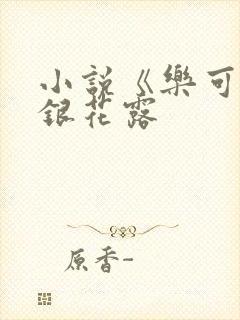 小說《樂可
銀花露
原香-